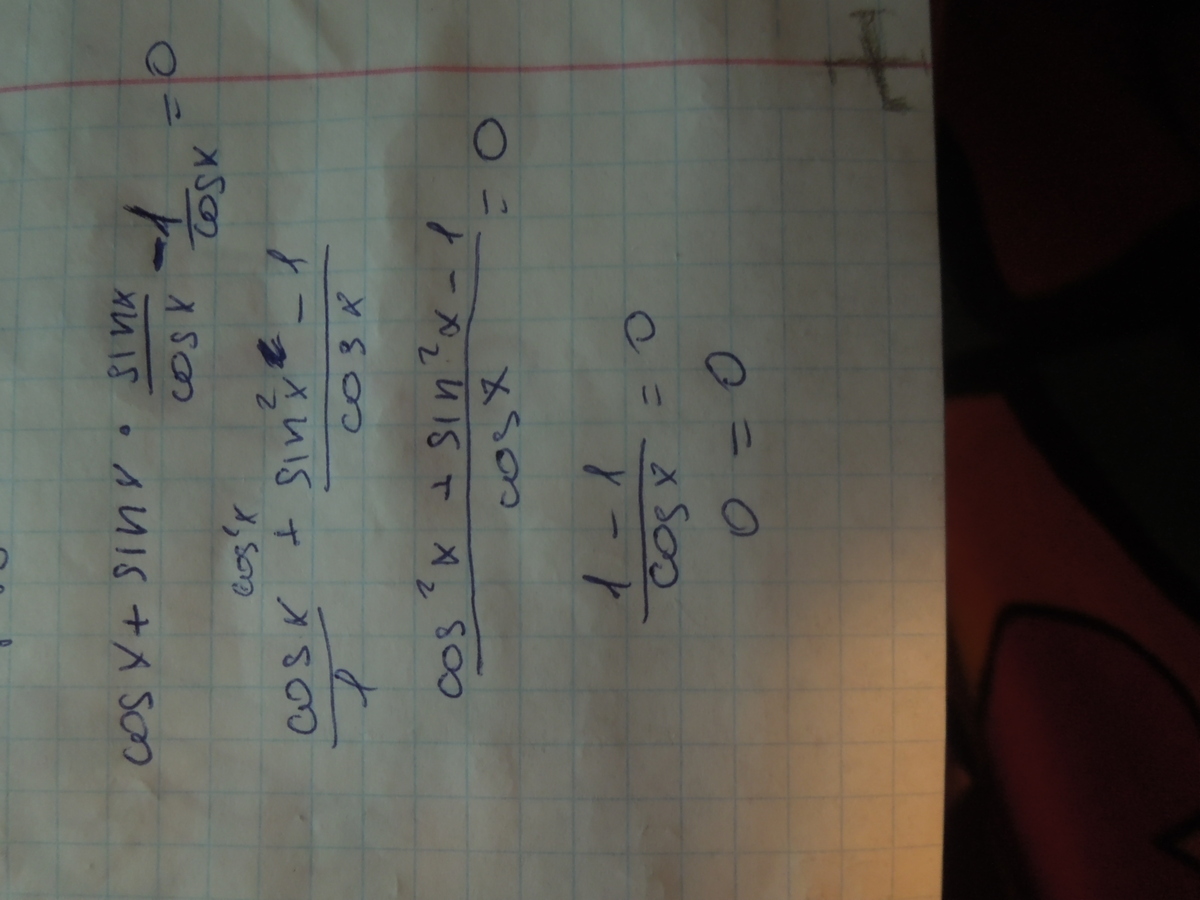 cos x + sin x · sin x / cos x - 1 / cos x = 0
cos²x
cos x / 1 + sin²x - 1 / cos x
cos²x + sin²x - 1 / cos x = 0
1 - 1 / cos x = 0
0 = 0